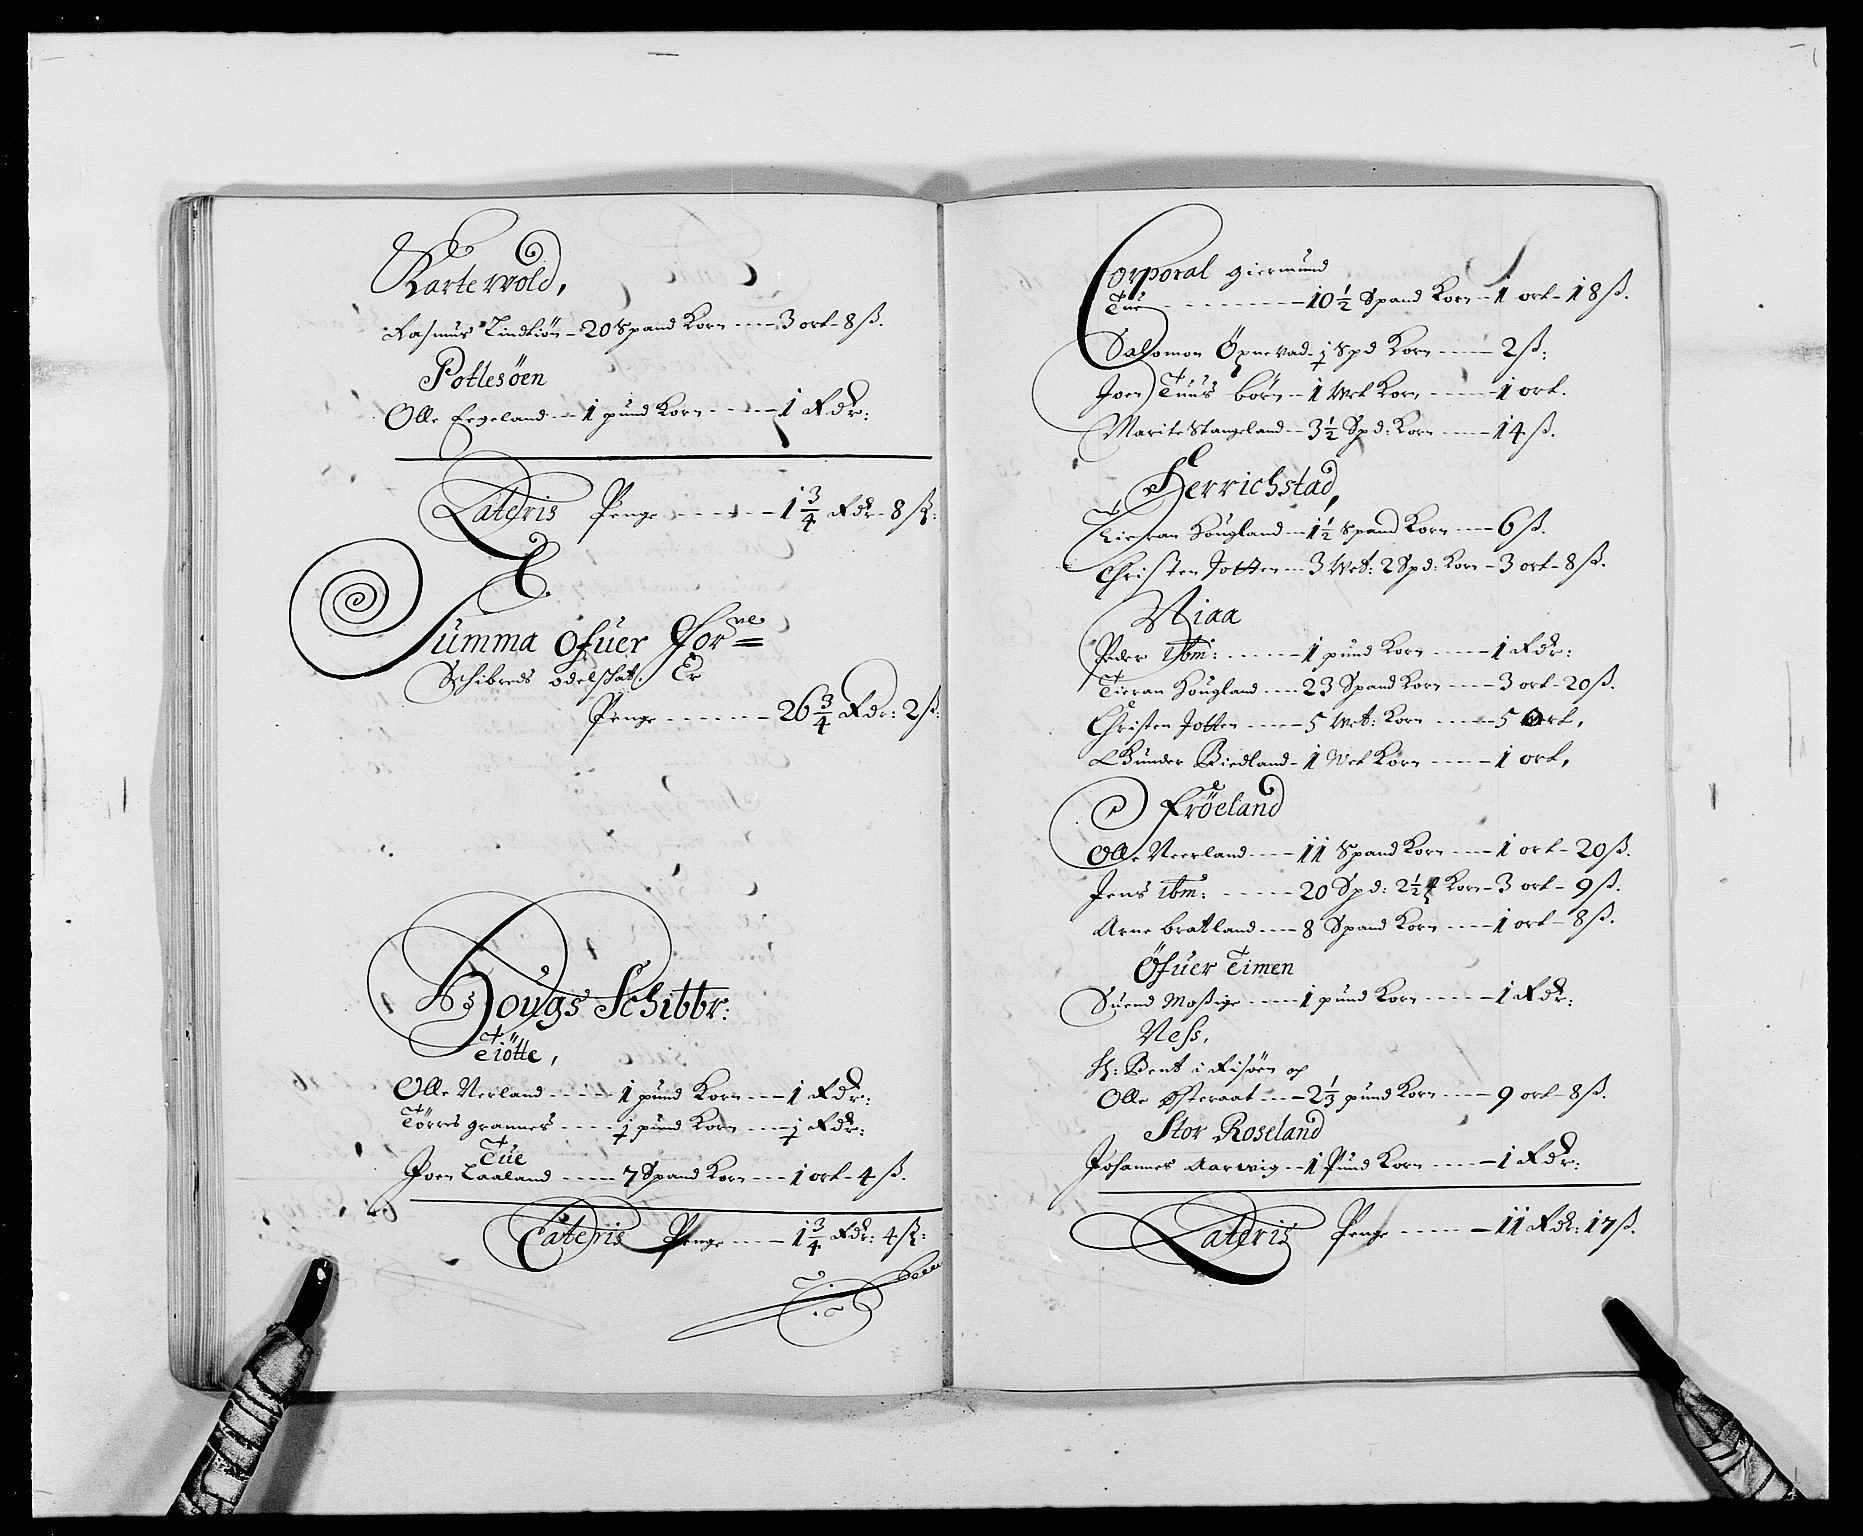 Kartevold,
Rasmus Lindtiøn - 20 Spand Korn --- 3 ort - 8 ß.
Pottesöen
Olle Eegeland --- 1 pund Korn ---- 1 Rdr:
Lateris Penge ---- 1 3/4 Rdr - 8 ß:
Summa Ofuer Thor ne =
Schibreds odelschat Er
Penge ------ 26 3/4 Rdr: 2 ß:
Hougs Schibbr:
Tiötte,
Olle Nerland ---- 1 pund Korn --- 1 Rdr:
Törres grannes ---- ½ pund Korn --- ½ Rdr:
Tüe
Joen Laaland ---- 7 Spand Korn --- 1 ort - 4 ß.
Lateris Penge --- 1 3/4 Rdr: 4 ß:
Corporal giermund
Tue --------- 10 1/2 Spand Korn - 1 ort - 18 ß.
Salomon Öpnevad - ½ Spd Korn ---- 2 ß:
Joen Tuus börn - 1 Wet Korn ---- 1 ort.
Marite Stangeland - 3 1/2 Spd: Korn ---- 14 ß.
Herrichstad,
Tieran Hougland - 1 1/2 Spand Korn --- 6 ß.
Christen Jotten --- 3 Wet: 2 Spd: Korn - 3 ort - 8 ß.
Niaa
Peder ibm: ----- 1 pund Korn ---- 1 Rdr:
Tieran Hougland --- 23 Spand Korn --- 3 ort - 20 ß.
Christen Jotten ---- 5 Wet: Korn ---- 5 Ort,
Gunder Biedland - 1 Wet Korn ---- 1 ort,
Fröeland
Olle Neerland --- 11 Spand Korn --- 1 ort - 20 ß.
Jens ibm: ----- 20 Spd: 2 1/2 Korn - 3 ort - 9 ß.
Arne bratland --- 8 Spand Korn --- 1 ort - 8 ß.
Öfuer Timen
Suend Moßige ---- 1 pund Korn ---- 1 Rdr:
Ness,
H: Bent i Risöen og
Olle Østeraat --- 2 1/3 pund Korn --- 9 ort - 8 ß.
Stor Roseland
Johannes Aarwig -- 1 Pund Korn ---- 1 Rdr:
Lateris Penge ----- 11 Rdr: 17 ß.